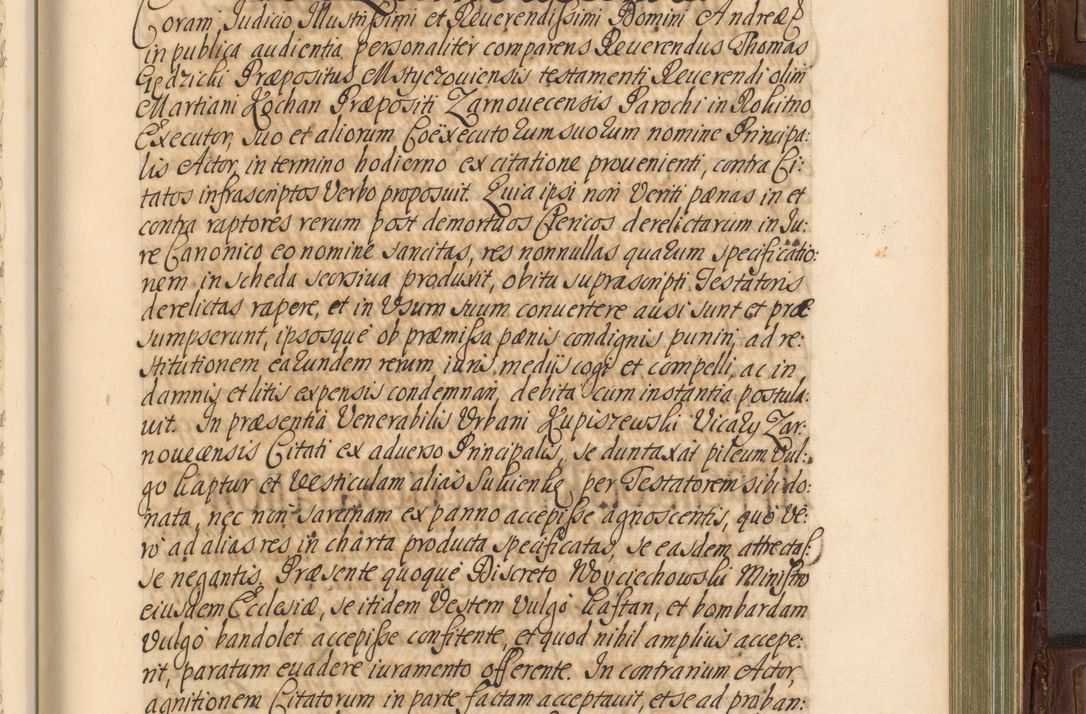 Coram Judicio Illustrissimi et Reverendissimi Domini Andreæ
in publica audientia personaliter comparens Reuerendus Thomas
Gędzichi Præpositus Mstyczouiensis testamenti Reuerendi olim
Martiani Kochan Præpositi Zarnouecensis Parochi in Rokitno
Executor, suo et aliorum Coëxecutorum suorum nomine Principa:
lis Actor, in termino hodierno ex citatione prouenienti, contra Ci:
tatos infrascriptos Verbo proposuit. Quia ipsi non Veriti pænas in et
contra raptores rerum post demortuos Clericos derelictarum in Ju:
re Canonico eo nomine sancitas, res nonnullas quarum specificatio:
nem in scheda seorsiua produxit, obitu suprascripti Testatoris
derelictas rapere, et in Usum suum conuertere ausi sunt et præ
sumpserunt, ipsosque ob præmissa pænis condignis puniri, ad re:
stitutionem earundem rerum iuris medijs cogi et compelli, ac in
damnis et litis expensis condemnari, debita cum instantia postula:
uit. In præsentia Venerabilis Urbani Kupiszewski Vicarÿ Zar:
noueæensis Citati ex aduerso Principalis, se duntaxat pileum Vul:
go kaptur et vesticulam alias Sukienkę, per Testatorem sibi do:
nata, nec non sarcinam ex panno accepisse agnoscentis, quo ve:
ro ad alias res in charta producta specificatas, se easdem attrectas:
se negantis. Præsente quoque Discreto Woyciechowski Ministro
eiusdem Ecclesiæ, se itidem Vestem Vulgo kaftan, et bombardam
Vulgo bandolet accepisse confitente, et quod nihil amplius accepe:
rit, paratum euadere iuramento offerente. In contrarium Actor,
agnitionem Citatorum in parte factam acceptauit, et se ad proban: